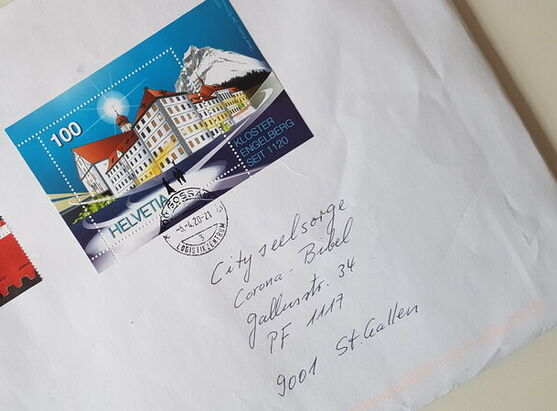 100
KLOSTER
ENGELBERG
SEIT 1120
HELVETIA
-6.4.20-21
3
LOGISTIKZENTRUM
Cityseelsorge
Corona-Bibel
Gallusstr. 34
PF 1117
9001 St.Gallen